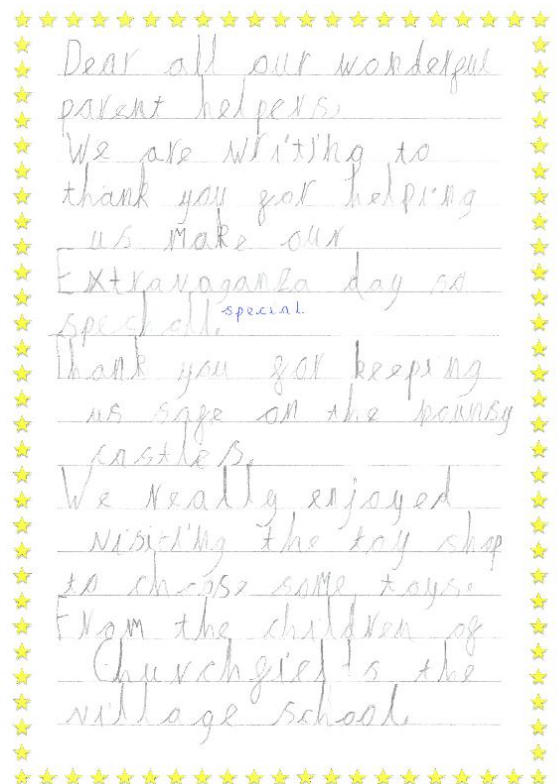 Dear all our wonderful
parent helpers.
We are writing to
thank you for helping
us make our
Extravaganza day so
speciall. special.
Thank you for keeping
us safe on the bounsy
castles.
We really enjoyed
visiting the toy shop
to choose some toys.
From the children of
Churchfields the
village school.